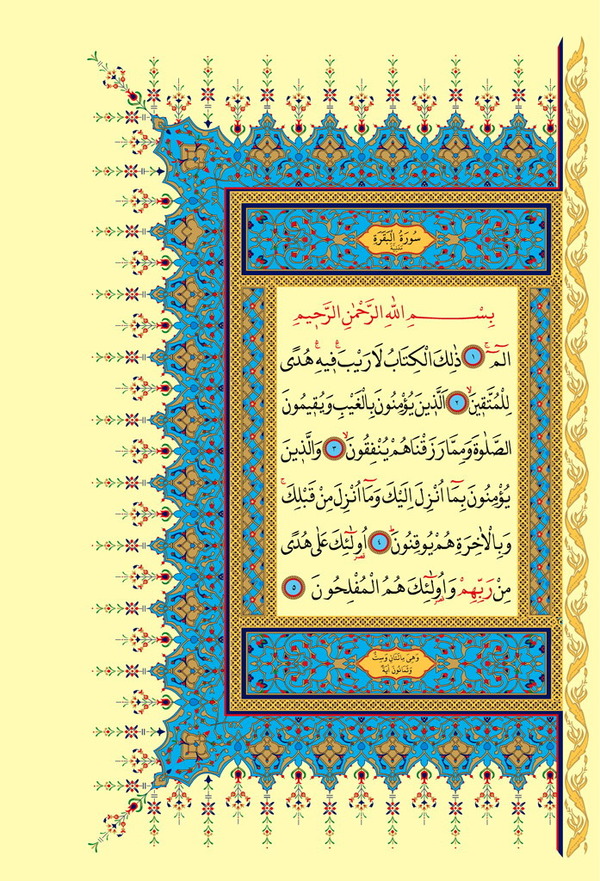 سُورَةُ الْبَقَرَةِ
مَدَنِيَّة
بِسْمِ اللّٰهِ الرَّحْمٰنِ الرَّحِيمِ
الٓمٓ ﴿١﴾ ذٰلِكَ الْكِتَابُ لَا رَيْبَ ۛ ف۪يهِ ۛ هُدًى
لِلْمُتَّق۪ينَۙ ﴿٢﴾ اَلَّذ۪ينَ يُؤْمِنُونَ بِالْغَيْبِ وَيُق۪يمُونَ
الصَّلٰوةَ وَمِمَّا رَزَقْنَاهُمْ يُنْفِقُونَۙ ﴿٣﴾ وَالَّذ۪ينَ
يُؤْمِنُونَ بِمَٓا اُنْزِلَ اِلَيْكَ وَمَٓا اُنْزِلَ مِنْ قَبْلِكَۚ
وَبِالْاٰخِرَةِ هُمْ يُوقِنُونَۜ ﴿٤﴾ اُو۬لٰٓئِكَ عَلٰى هُدًى
مِنْ رَبِّهِمْ وَاُو۬لٰٓئِكَ هُمُ الْمُفْلِحُونَ ﴿٥﴾
وَهِيَ مِائَتَانِ وَسِتٌّ
وَثَمَانُونَ اٰيَةً